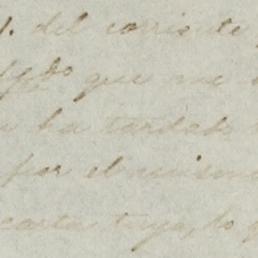 1. del corriente
que me
ha tardado
por el mismo
carta tuya, lo q